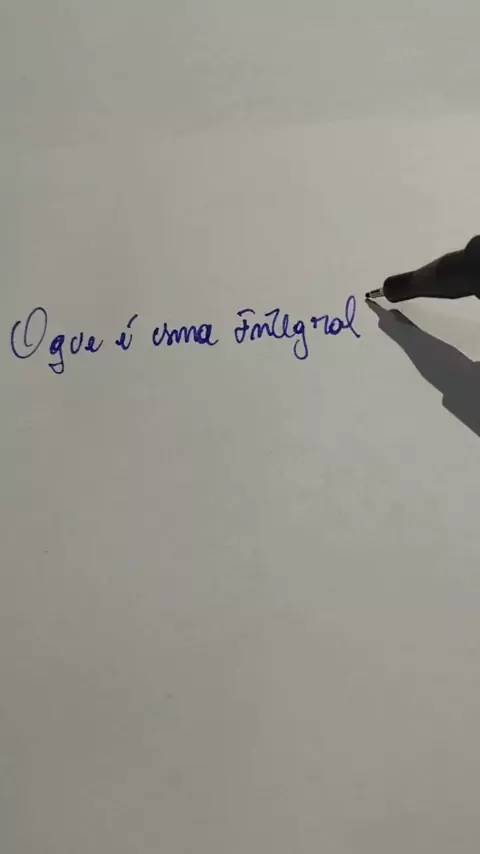 O que é uma integral